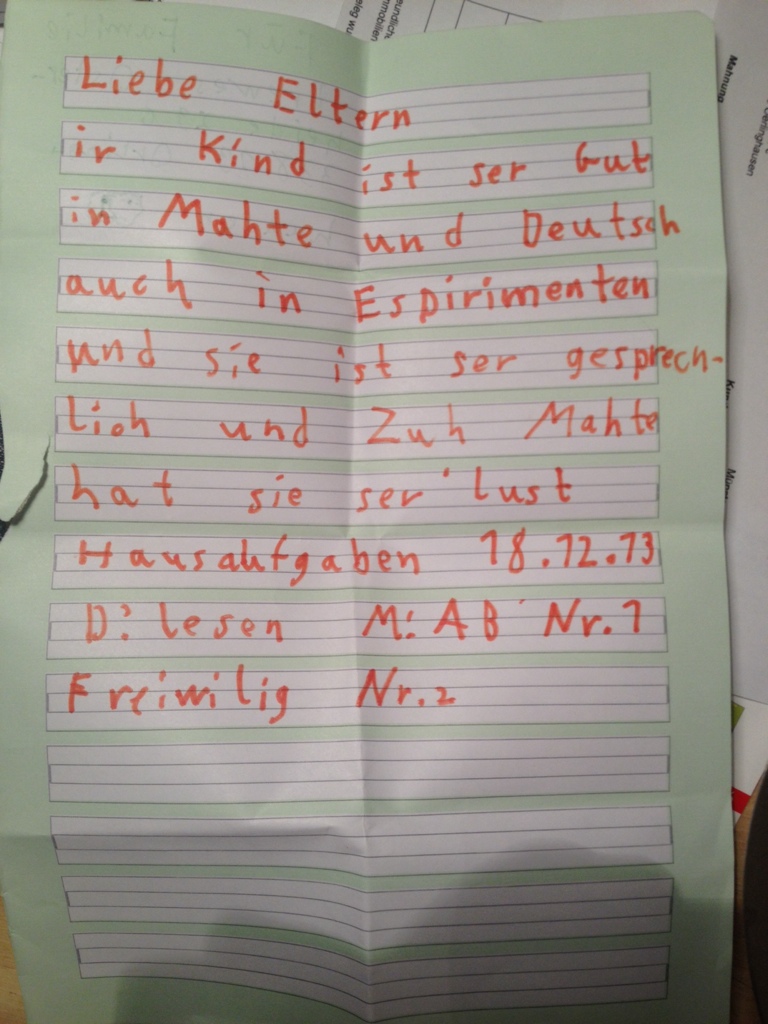 Liebe Eltern
ir Kind ist ser Gut
in Mahte und Deutsch
auch in Espirimenten
und sie ist ser gesprech-
lich und Zuh Mahte
hat sie ser lust
Hausaufgaben 18.12.13
D: lesen M: AB Nr. 1
Freiwilig Nr. 2
Mahnung